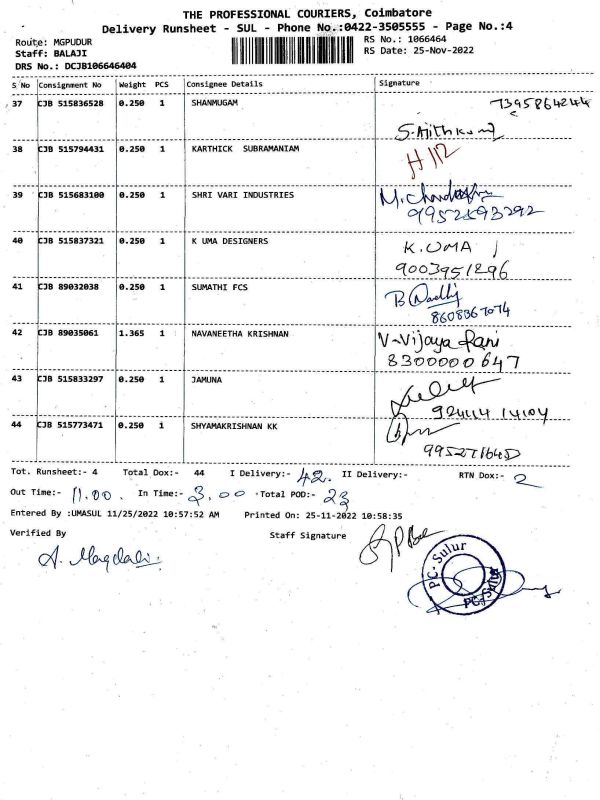 THE PROFESSIONAL COURIERS, Coimbatore
Delivery Runsheet - SUL - Phone No.:0422-3505555 - Page No.:4
Route: MGPUDUR
RS No.: 1066464
Staff: BALAJI
RS Date: 25-Nov-2022
DRS No.: DCJB106646404
S No Consignment No Weight PCS Consignee Details Signature
37 CJB 515836528 0.250 1 SHANMUGAM 7395864244
S. Ajithkumar
38 CJB 515794431 0.250 1 KARTHICK SUBRAMANIAM H112
39 CJB 515683100 0.250 1 SHRI VARI INDUSTRIES
40 CJB 515837321 0.250 1 K UMA DESIGNERS K. UMA
9003951296
41 CJB 89032038 0.250 1 SUMATHI FCS
8608367074
42 CJB 89035061 1.365 1 NAVANEETHA KRISHNAN V-Vijaya Rani
8300000647
43 CJB 515833297 0.250 1 JAMUNA
44 CJB 515773471 0.250 1 SHYAMAKRISHNAN KK
Tot. Runsheet:- 4 Total Dox:- 44 I Delivery:- 42. II Delivery:- RTN Dox:- 2
Out Time:- 11.00. In Time:- 3.00 Total POD:- 23
Entered By :UMASUL 11/25/2022 10:57:52 AM Printed On: 25-11-2022 10:58:35
Verified By Staff Signature
PC- Sulur
PC- Sulur